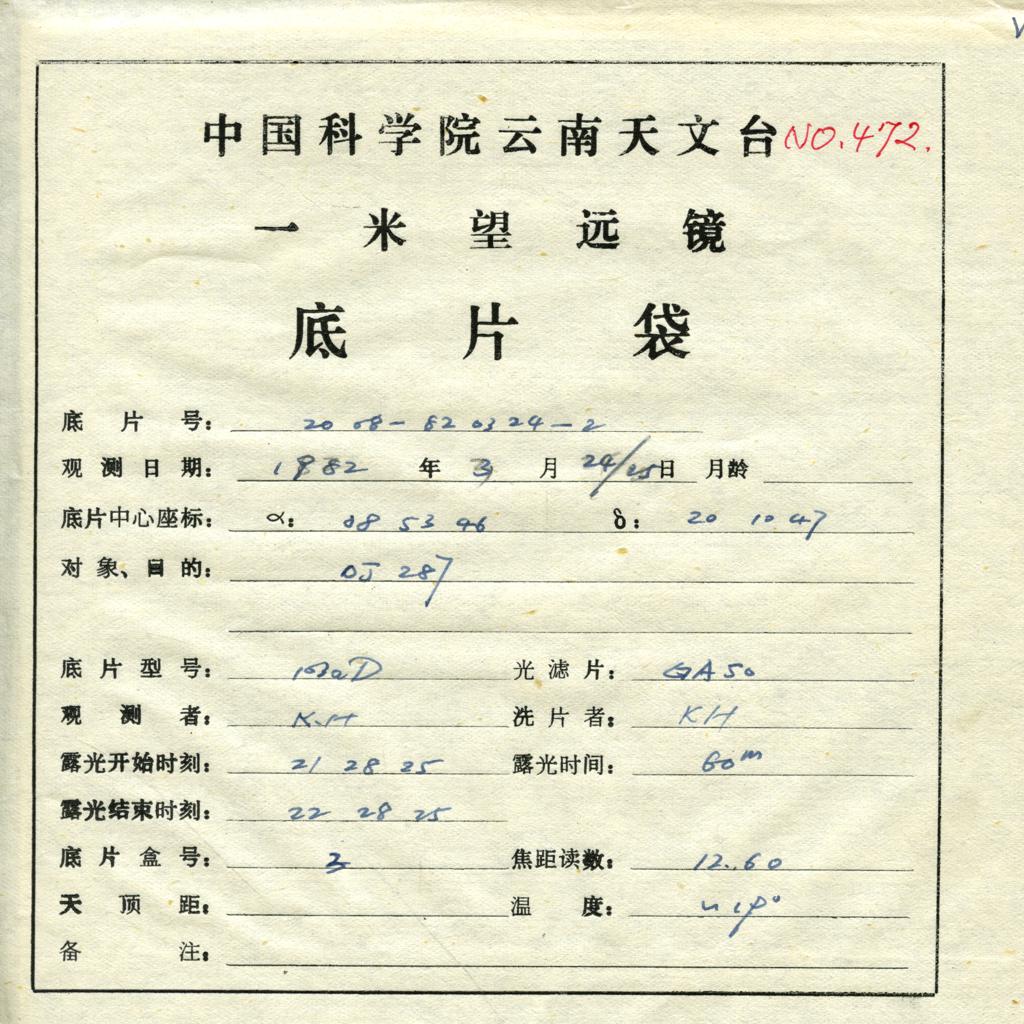 中国科学院云南天文台 NO.472.
一米望远镜
底片袋
底片号: 2008-820324-2
观测日期: 1982 年 3 月 24/25 日 月龄
底片中心座标: α: 08 53 46 δ: 20 10 47
对象、目的: OJ 287
底片型号: 103aD 光滤片: GA50
观测者: K.H 洗片者: KH
露光开始时刻: 21 28 25 露光时间: 60m
露光结束时刻: 22 28 25
底片盒号: 3 焦距读数: 12.60
天顶距: 温度:
备注: